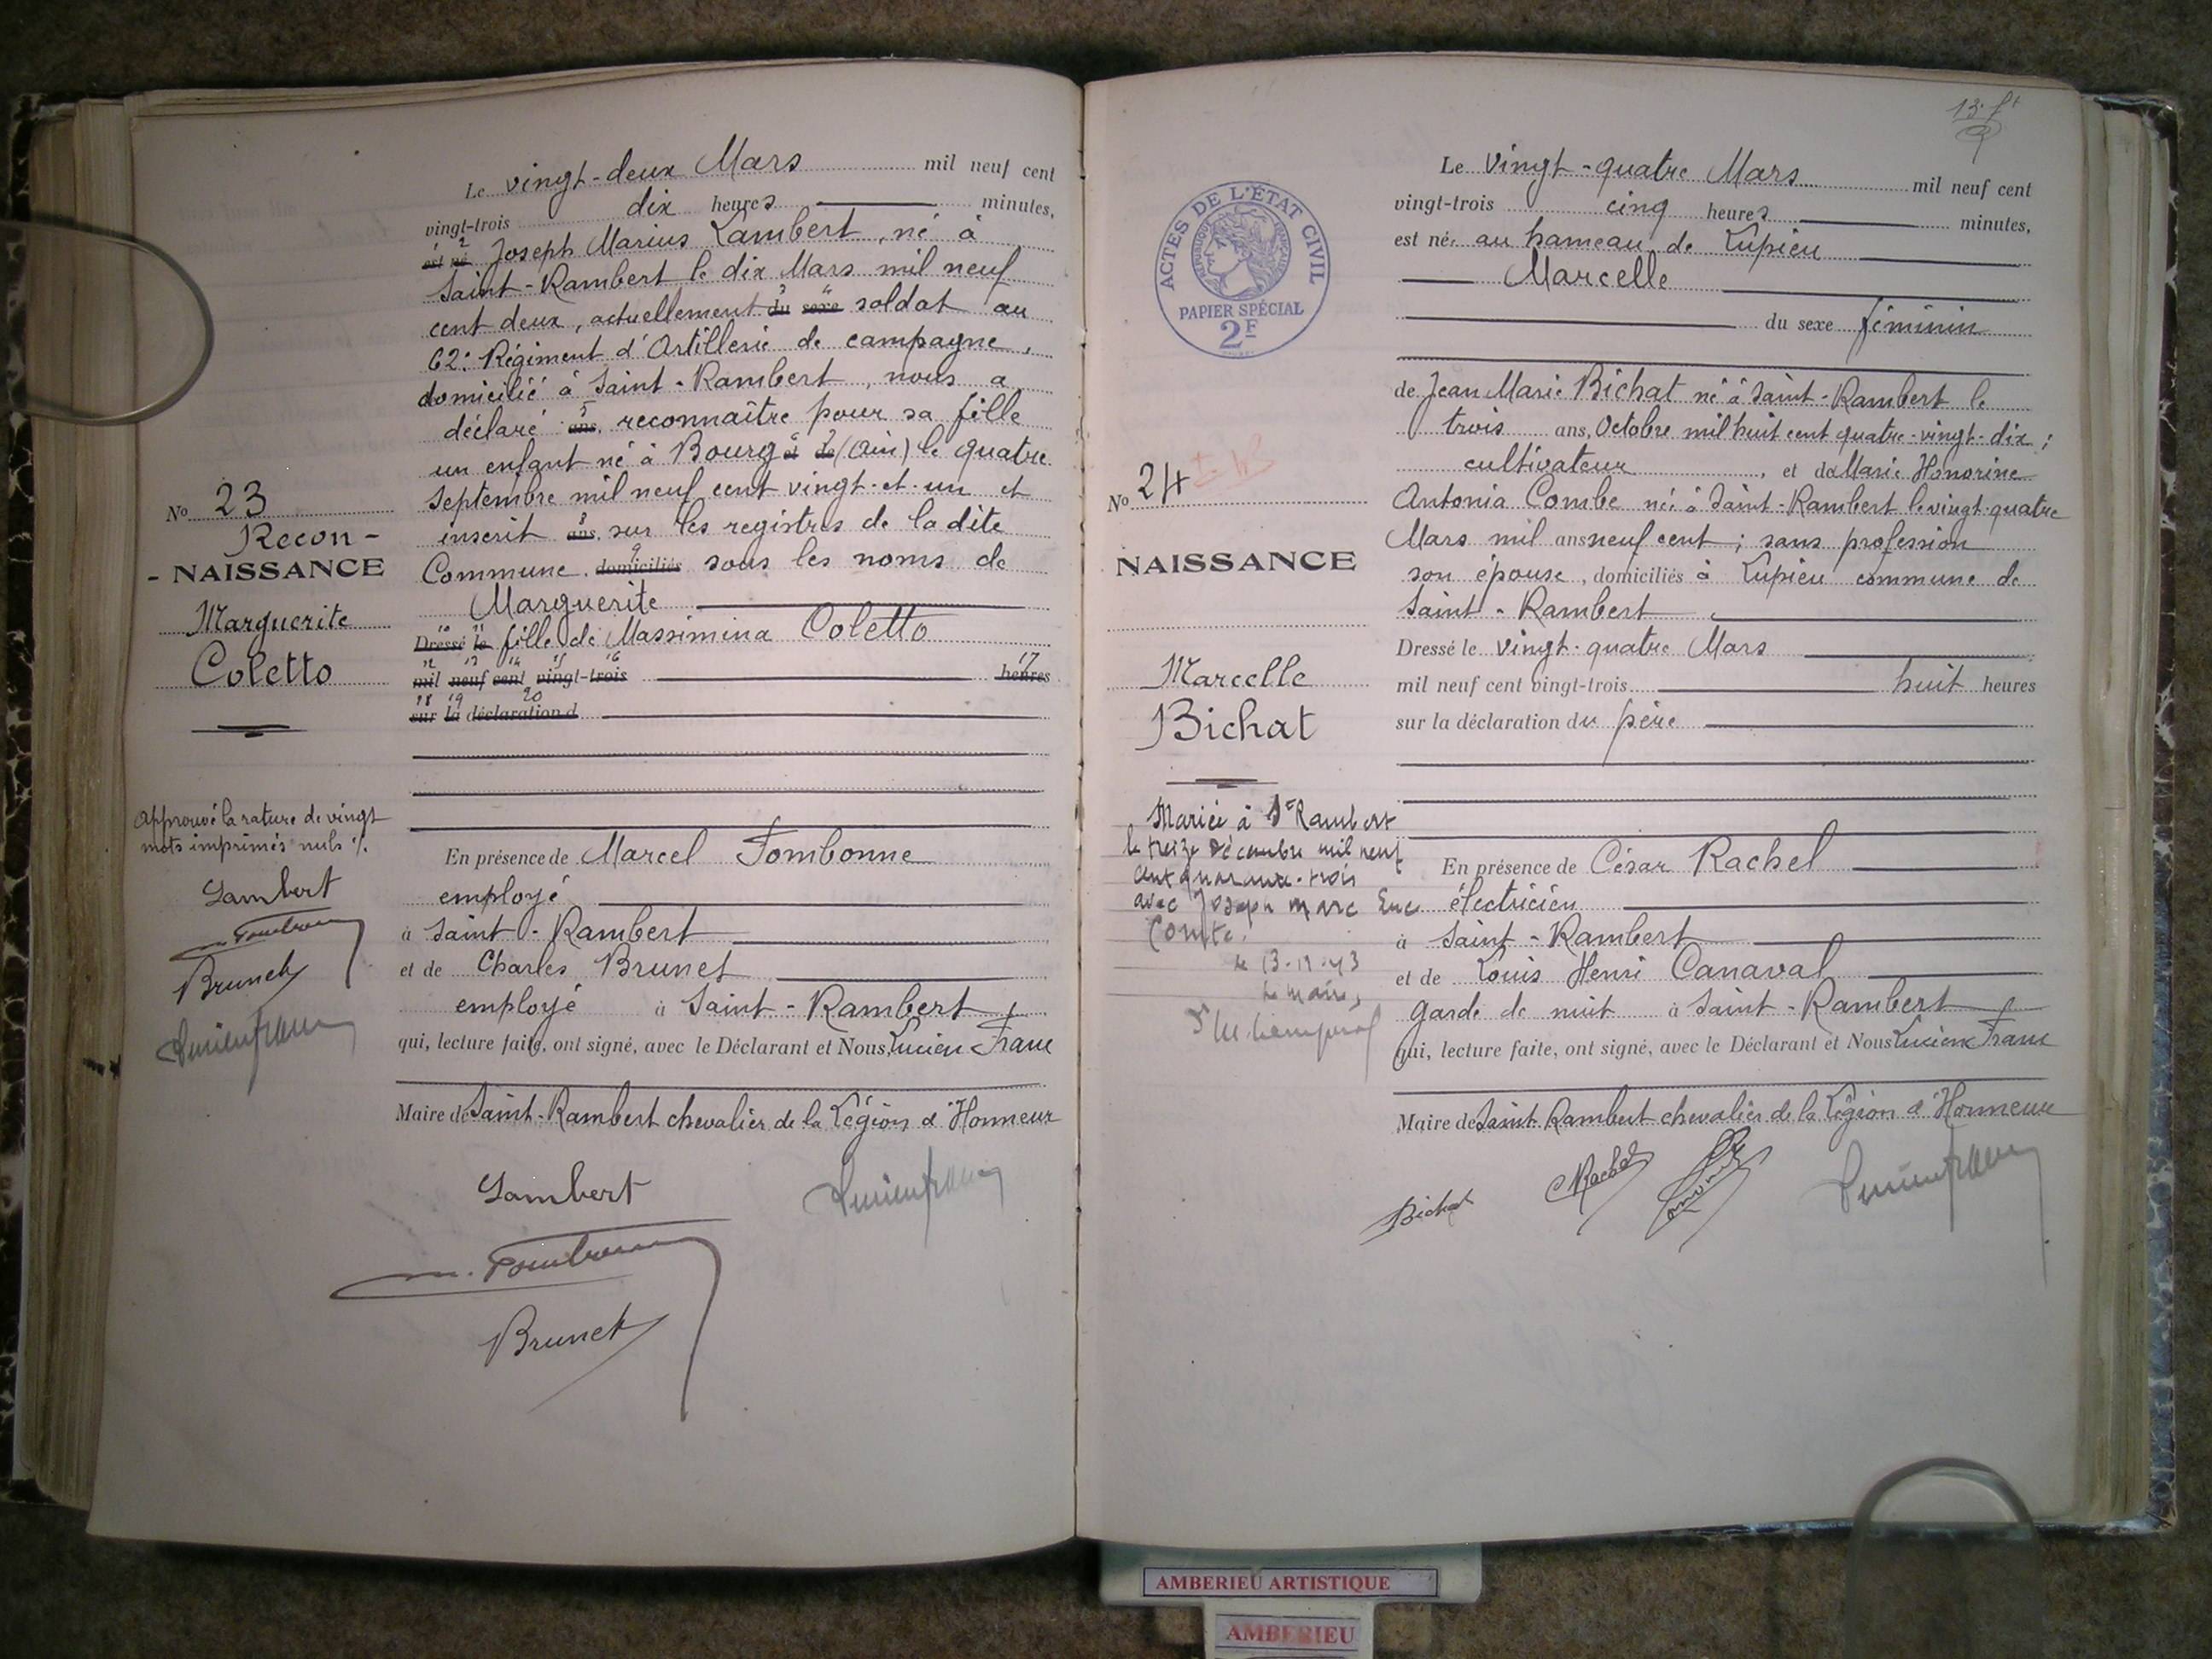 Le vingt-deux Mars mil neuf cent
vingt-trois dix heures minutes,
est né Joseph Marius Lambert, né à
Saint-Rambert le dix Mars mil neuf
cent deux, actuellement du sexe soldat au
62e Régiment d'Artillerie de campagne,
domicilié à Saint-Rambert, nous a
déclaré ans, reconnaître pour sa fille
un enfant né à Bourg et de (Ain) le quatre
Septembre mil neuf cent vingt-et-un et
inscrit ans, sur les registres de la dite
Commune, domiciliés sous les noms de
Marguerite
Dressé le fille de Massimina Coletto
mil neuf cent vingt-trois heures
sur la déclaration d
No 23
Recon-
-NAISSANCE
Marguerite
Coletto
Approuvé la rature de vingt
mots imprimés nuls ./.
Lambert
m. Fombonne
Brunet
Lucien Franc
En présence de Marcel Fombonne
employé
à Saint-Rambert
et de Charles Brunet
employé à Saint-Rambert
qui, lecture faite, ont signé, avec le Déclarant et Nous, Lucien Franc
Maire de Saint-Rambert chevalier de la Légion d'Honneur
Lambert
Lucien Franc
m. Fombonne
Brunet
13.
ACTES DE L'ÉTAT CIVIL
RÉPUBLIQUE FRANÇAISE
PAPIER SPÉCIAL
2F
Le vingt-quatre Mars mil neuf cent
vingt-trois cinq heures minutes,
est née au hameau de Lupieu
Marcelle
du sexe féminin
de Jean Marie Bichat né à Saint-Rambert le
trois ans, Octobre mil huit cent quatre-vingt-dix;
cultivateur, et de Marie Honorine
Antonia Combe née à Saint-Rambert le vingt-quatre
Mars mil ans neuf cent; sans profession
son épouse, domiciliés à Lupieu commune de
Saint-Rambert
Dressé le vingt-quatre Mars
mil neuf cent vingt-trois huit heures
sur la déclaration du père
No 24
NAISSANCE
Marcelle
Bichat
Mariée à St Rambert
le treize décembre mil neuf
cent quarante-trois
avec Joseph Marc Luc
Comte.
le 13-12-43
Le maire,
En présence de César Rachel
électricien
à Saint-Rambert
et de Louis Henri Canaval
garde de nuit à Saint-Rambert
qui, lecture faite, ont signé, avec le Déclarant et Nous Lucien Franc
Maire de Saint Rambert chevalier de la Légion d'Honneur
Bichat
CRachel
Lucien Franc
AMBERIEU ARTISTIQUE
AMBERIEU